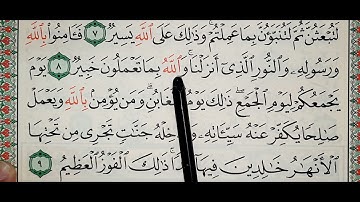 لَتُبْعَثُنَّ ثُمَّ لَتُنَبَّؤُنَّ بِمَا عَمِلْتُمْ ۚ وَذَٰلِكَ عَلَى ٱللَّهِ يَسِيرٌ ٧ فَـَٔامِنُوا۟ بِٱللَّهِ
وَرَسُولِهِۦ وَٱلنُّورِ ٱلَّذِىٓ أَنزَلْنَا ۚ وَٱللَّهُ بِمَا تَعْمَلُونَ خَبِيرٌ ٨ يَوْمَ
يَجْمَعُكُمْ لِيَوْمِ ٱلْجَمْعِ ۖ ذَٰلِكَ يَوْمُ ٱلتَّغَابُنِ ۗ وَمَن يُؤْمِنۢ بِٱللَّهِ وَيَعْمَلْ
صَـٰلِحًا يُكَفِّرْ عَنْهُ سَيِّـَٔاتِهِۦ وَيُدْخِلْهُ جَنَّـٰتٍ تَجْرِى مِن تَحْتِهَا
ٱلْأَنْهَـٰرُ خَـٰلِدِينَ فِيهَآ أَبَدًا ۚ ذَٰلِكَ ٱلْفَوْزُ ٱلْعَظِيمُ ٩